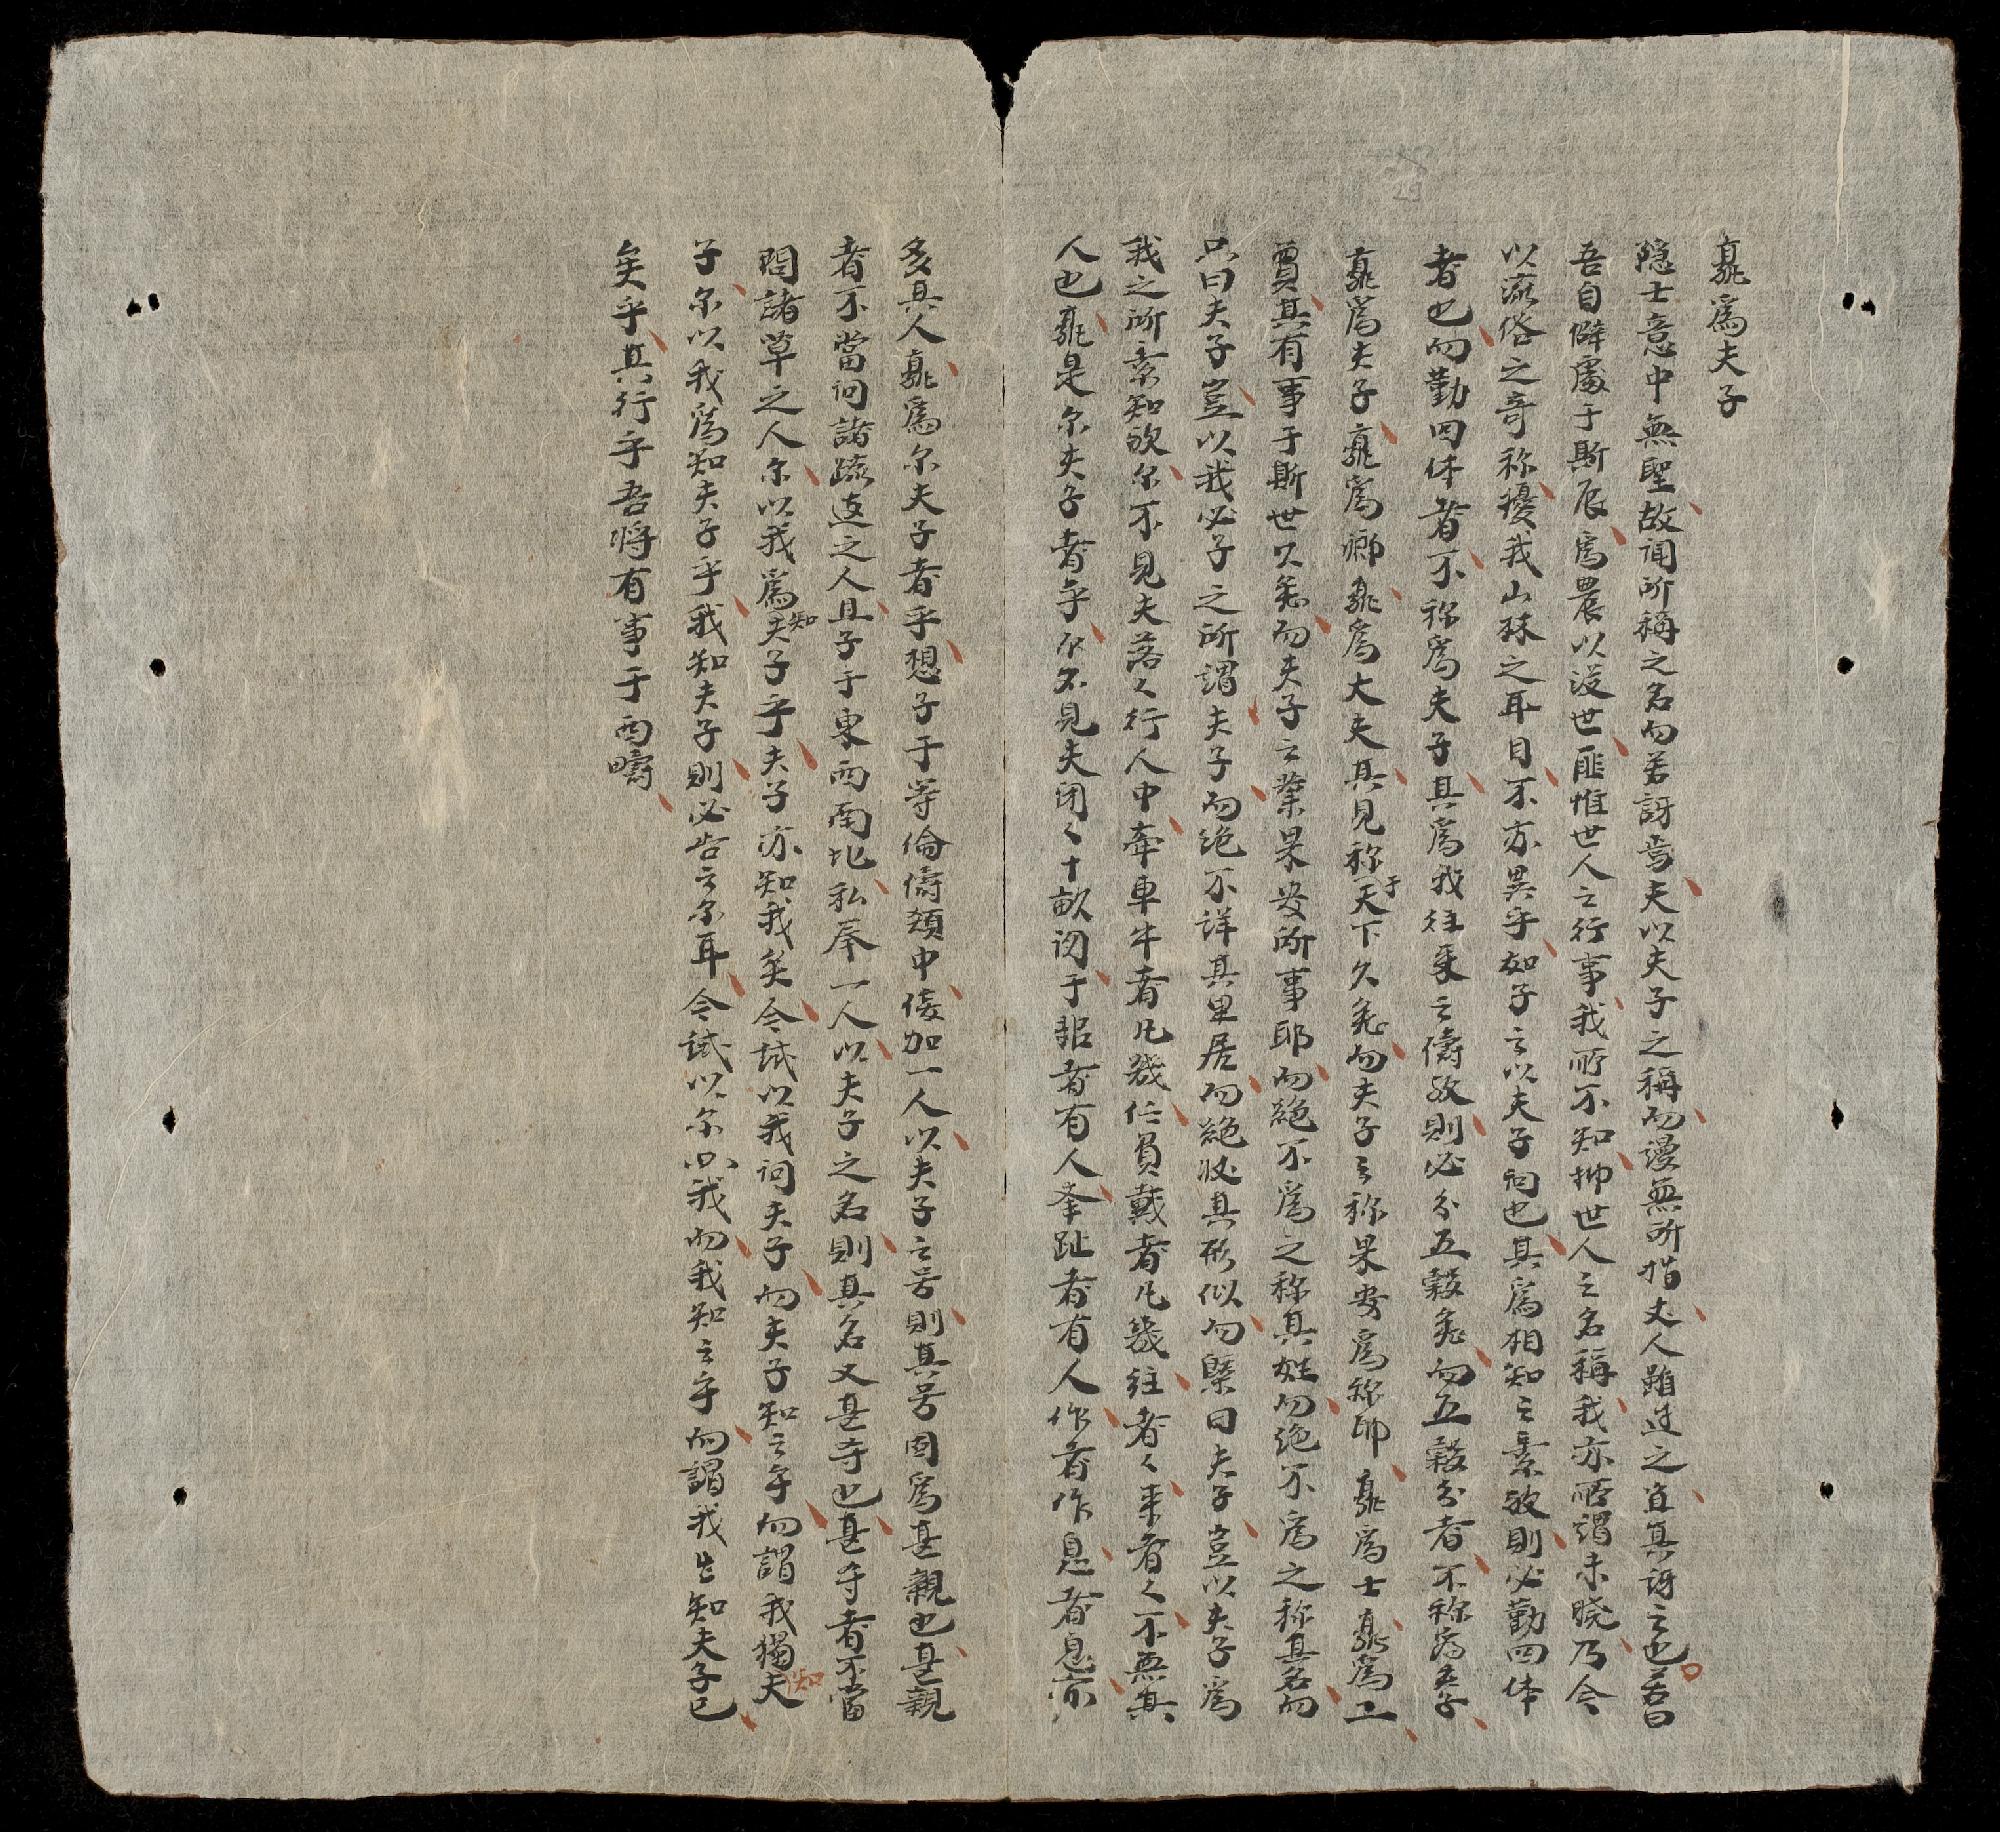 孰爲夫子
隐士意中無聖故闻所稱之名而若訝焉夫以夫子之稱而漫無所指丈人雖过之宜其訝之也若曰
吾自僻處于斯辰爲農以没世匪惟世人之行事我所不知抑世人之名稱我亦所谓未晓乃今
以流俗之奇称擾我山林之耳目不亦異乎如子之以夫子问也其爲相知之素欤則必勤四体
者也而勤四体者不称爲夫子其爲我往来之儔欤則必分五穀矣而五穀分者不称为夫子
孰爲夫子孰爲卿孰爲大夫其見称于天下久矣而夫子之称果安爲称耶孰爲士孰爲工
賈其有事于斯世久矣而夫子之業果安所事耶而絕不爲之称其姓而绝不爲之称其名而
只曰夫子豈以我必子之所謂夫子而绝不詳其里居而絕状其形似而槩曰夫子豈以夫子爲
我之所素知欤尔不見夫落々行人中牽車牛者凡幾任負戴者凡幾往者々来者々不無其
人也孰是尔夫子者乎尔不見夫闭々十畝间于耜者有人举趾者有人作者作息者息亦
多其人孰爲尔夫子者乎想子于等倫儕類中倰加一人以夫子之号則其号固爲甚親也甚親
者不當问諸疏逺之人且子于東西南北私奉一人以夫子之名則其名又甚尊也甚尊者不當
問諸草之人尔以我爲知夫子乎夫子亦知我矣今试以我问夫子而夫子知之乎而謂我獨知夫
子尔以我爲知夫子乎我知夫子則必告之尔耳今試以尔以我而我知之乎而謂我岂知夫子已
矣乎其行乎吾將有事于西疇